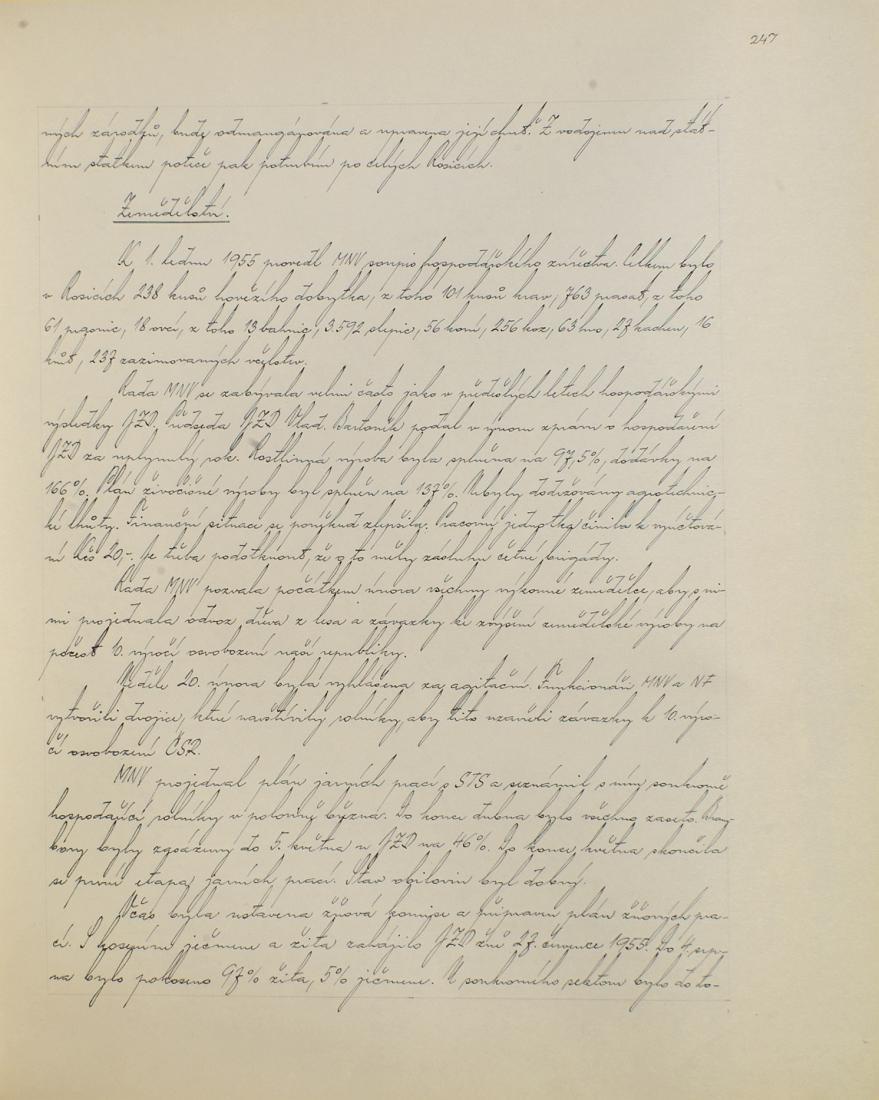 247
ných zárodků, bude odmangánována a upravena její chuť. Z vodojemu nad stát-
ním statkem poteče pak potrubím po celých Rosicích.
Zemědělství.
K 1. lednu 1955 provedl MNV soupis hospodářského zvířectva. Celkem bylo
v Rosicích 238 kusů hovězího dobytka, z toho 101 kusů krav, 763 prasat, z toho
61 prasnic, 18 ovcí, z toho 13 bahnic, 3.592 slepic, 56 koní, 256 koz, 63 hus, 27 kachen, 16
krůt, 237 zazimovaných včelstev.
Rada MNV se zabývala velmi často jako v předešlých letech hospodářskými
výsledky JZD. Předseda JZD Vlad. Bartoněk podal v únoru zprávu o hospodaření
JZD za uplynulý rok. Rostlinná výroba byla splněna na 97,5%, dodávky na
166%. Plán živočišné výroby byl splněn na 137%. Nebyly dodržovány agrotechnic-
ké lhůty. Finanční situace se poněkud zlepšila. Pracovní jednotka činila k vyúčtová-
ní Kčs 20,-. Je třeba podotknout, že o to měly zásluhu četné brigády.
Rada MNV pozvala počátkem února všechny výkonné zemědělce, aby s ni-
mi projednala odvoz dřeva z lesa a závazky ke zvýšení zemědělské výroby na
počest 10. výročí osvobození naší republiky.
Neděle 20. února byla vyhlášena za agitační. Funkcionáři MNV a NF
vytvořili dvojice, které navštívily rolníky, aby tito uzavřeli závazky k 10. výro-
čí osvobození ČSR.
MNV projednal plán jarních prací s STS a seznámil s ním soukromě
hospodařící rolníky v polovině března. Do konce dubna bylo všechno zaseto. Bram-
bory byly zasázeny do 5. května u JZD na 46%. Do konce května skončila
se první etapa jarních prací. Stav obilovin byl dobrý.
Včas byla ustavena žňová komise a připraven plán žňových pra-
cí. S kosením ječmene a žita zahájilo JZD žně 27. července 1955. Do 4. srp-
na bylo pokoseno 97% žita, 5% ječmene. U soukromého sektoru bylo do to-